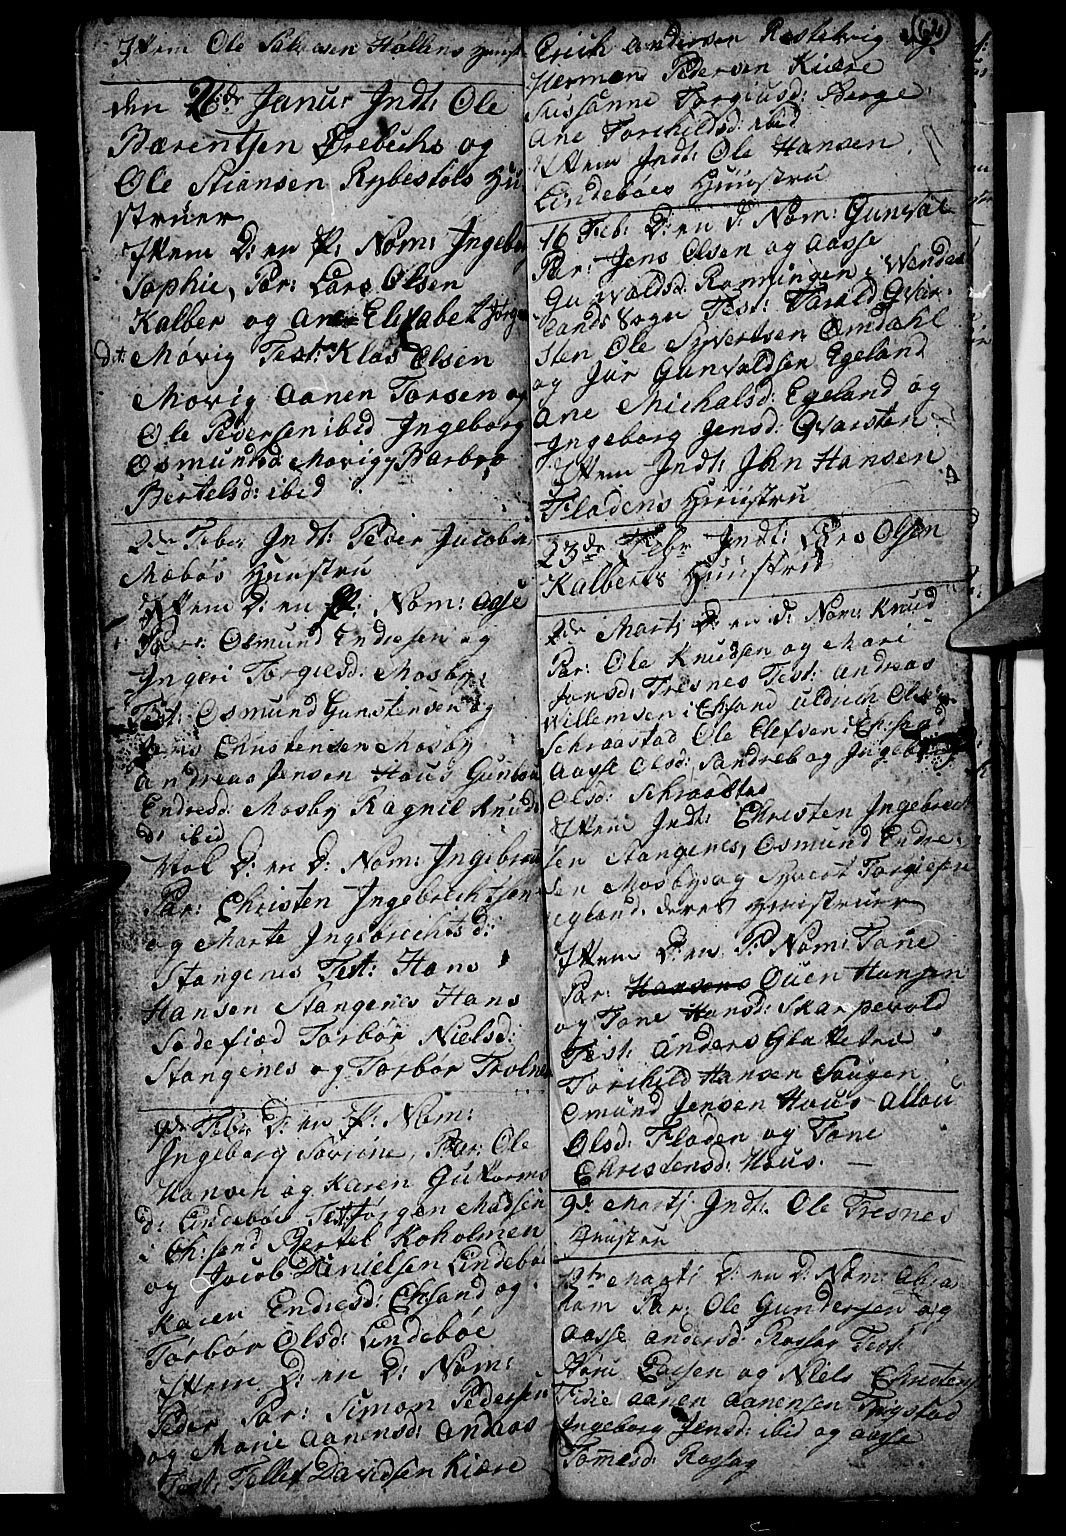 Item Ole Salvesen Hollens Hustr
den 26de Janu: Indt: Ole
Bærentsen Ørebechs og
Ole Stiansen Rybestøls Hu
struer
Item D: en P: Nom: Ingeb
Sophie, Par: Lars Olsen
Kalber og Ane Elisabet Jørgen
dt: Møvig Test: Klas Elsen
Møvig Aanen Torsen og
Ole Pedersen ibid Ingeborg
Osmundsd: Møvig Barbro
Bertelsd: ibid
2den Febr: Indt: Peder Jacobs
Mæbøs Huustru
Item D: en P: Nom: Aase
Par: Osmund Endresen og
Ingeri Torgiesd: Mosby
Test: Osmund Gunstensen og
Jens Christensen Mosby
Andreas Jensen Haus Gunbor
Endresd: Mosby Ragnil Knuds
d: ibid
D: en D: Nom: Ingebret
Par: Christen Ingebrichtsen
og Marte Ingebrichtsd:
Stangenes Test: Hans
Hansen Stangenes Hans
Sødefiæd Torbør Nielsd:
Stangenes og Torbør Trolnes
9de Febr: D: en P: Nom:
Ingeborg Soviøne, Par: Ole
Hansen og Karen Guttorms
d: Lindebøe Test: Jørgen Madsen
i Ch:sand Bertel Koholmen
og Jacob Danielsen Lindebøe
Karen Endresd: Chsand og
Torbør Olsd: Lindebøe
Item D: en D: Nom:
Peder Par: Simon Pedersen
og Marie Aanensd: Andaas
Test: Tellef Davidsen Kiære
62
Erich Andersen Røstelvig og
Herman Pedersen Kiære
Susanne Torgiusd: Berge
Ane Torchildsd: ibid
Item Indt: Ole Hansen
Lindebøes Huustru
16 Feb: D: en D: Nom: Gunval
Par: Jens Olsen og Aasse
Gunvaldsd: Romningen i Wendes
lands Sogn Test: Tarald Qvar
sten Ole Syvertsen Omdahl
og Jur Gunvaldsen Egeland
Ane Michalsd: Egeland og
Ingeborg Jensd: Qvarsten
Item Indt: John Hansen
Fladens Huustru
23de Febr Indt: Lars Olsen
Kalbers Huustru
2de Martj D: en D: Nom: Knud
Par: Ole Knudsen og Mari
Jonsd: Tresnes Test: Andreas
Willemsen i Chsand Uldrich Ols
Schraastad Ole Elefsen i Ch:sand
Aasse Olsd: Sandreb og Ingeb
Olsd: Schraastad
Item Indt: Christen Ingebrecht
sen Stangenes, Osmund Endre
sen Mosbys og Syvert Torgiesen
Egland: deres Huustruer
Item D: en P: Nom: Tone
Par: Hansens Ouen Hansen
og Tone Hansd: Skarpevold
Test: Anders Glattetre
Torchild Hansen Saugen
Omund Jensen Haus Allou
Olsd: Fladen og Tone
Christensd: Haus.
9de Martj Indt: Ole Tresnes
Huustru
12te Martj D: en D: Nom: Abra
ham Par: Ole Gundersen og
Aasse Andersd: Rossøg Test:
og Niels Christens
Tidie Aanen Aanensen Trystad
Ingeborg Jensd: ibid og Aasse
Tommesd: Rossøg